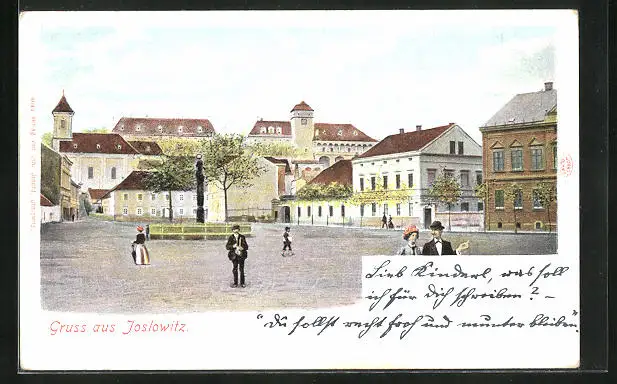 Lieb Kinderl, was soll
ich für Dich schreiben? –
"Du sollst recht froh und munter bleiben."
Gruss aus Joslowitz.